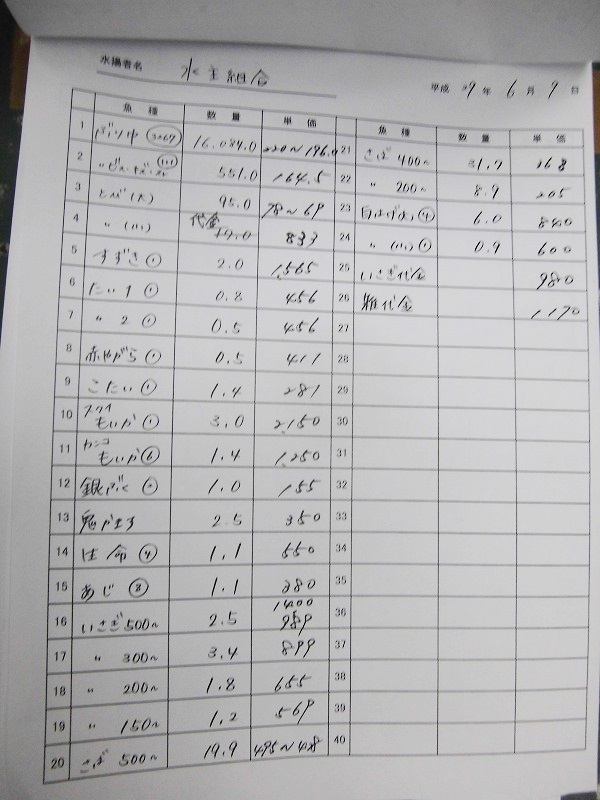 水揚者名 水主組合
平成 29年 6月 9日
魚種 数量 単価
1 ブリ中 (2067) 16,084.0 220〜196.0
2 (111) 551.0 164.5
3 とび(大) 95.0 78〜69
4 〃(小) 代金 833
5 すずき (1) 2.0 1,565
6 たい1 (1) 0.8 456
7 〃 2 (1) 0.5 456
8 赤やがら (1) 0.5 411
9 こたい (1) 1.4 281
10 スワイ もいか (1) 3.0 2,150
11 カンコ もいか (6) 1.4 1,250
12 銀ふぐ 1.0 155
13 鬼かます 2.5 350
14 (4) 1.1 550
15 あじ (8) 1.1 280
16 いさぎ 500〜 2.5 1400 989
17 〃 300〜 3.4 899
18 〃 200〜 1.8 655
19 〃 150〜 1.2 569
20 さば 500〜 19.9 495〜428
魚種 数量 単価
21 さば 400〜 31.7 268
22 〃 200〜 8.9 205
23 白はげ(大) (4) 6.0 840
24 〃(小) (1) 0.9 600
25 いさぎ代金 980
26 雑代金 1170
27
28
29
30
31
32
33
34
35
36
37
38
39
40